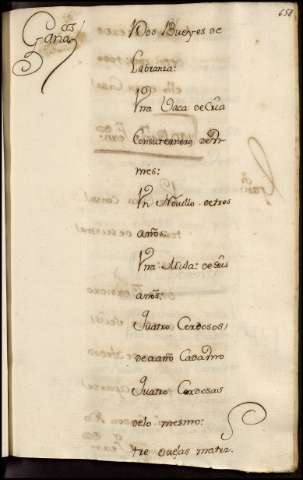 658
Dos Bueyes de
Labranza:
Vna Vaca de Cria
con su ternero de Vn
mes:
Vn Novillo de tres
años:
Vna Mula: de seis
años:
Quatro Cerdosos
de año Cada Vno
Quatro Cerdosas
de lo mesmo:
tre ovejas matrz.